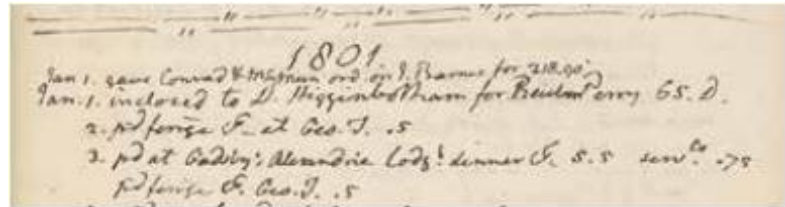 1801
Jan 1. gave Conrad & McMunn ord. on J. Barnes for 218.90
Jan. 1. inclosed to D. Higginbotham for Reuben Perry 65. D.
2. pd ferrge F. at Geo. T. .5
3. pd at Gadsby's Alexandria Lodgg dinner &c. 5.5 servts .75
pd ferrge &c. Geo. T. .5